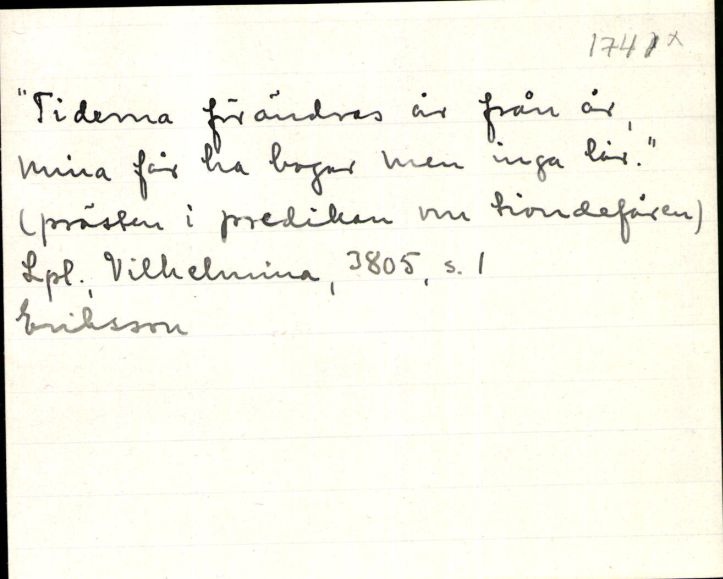 174 x
"Tiderna förändras år från år,
mina får ha bogar men inga lår."
(prästen i predikan om tiondefåren)
Lpl., Vilhelmina, 3805, s. 1
Eriksson